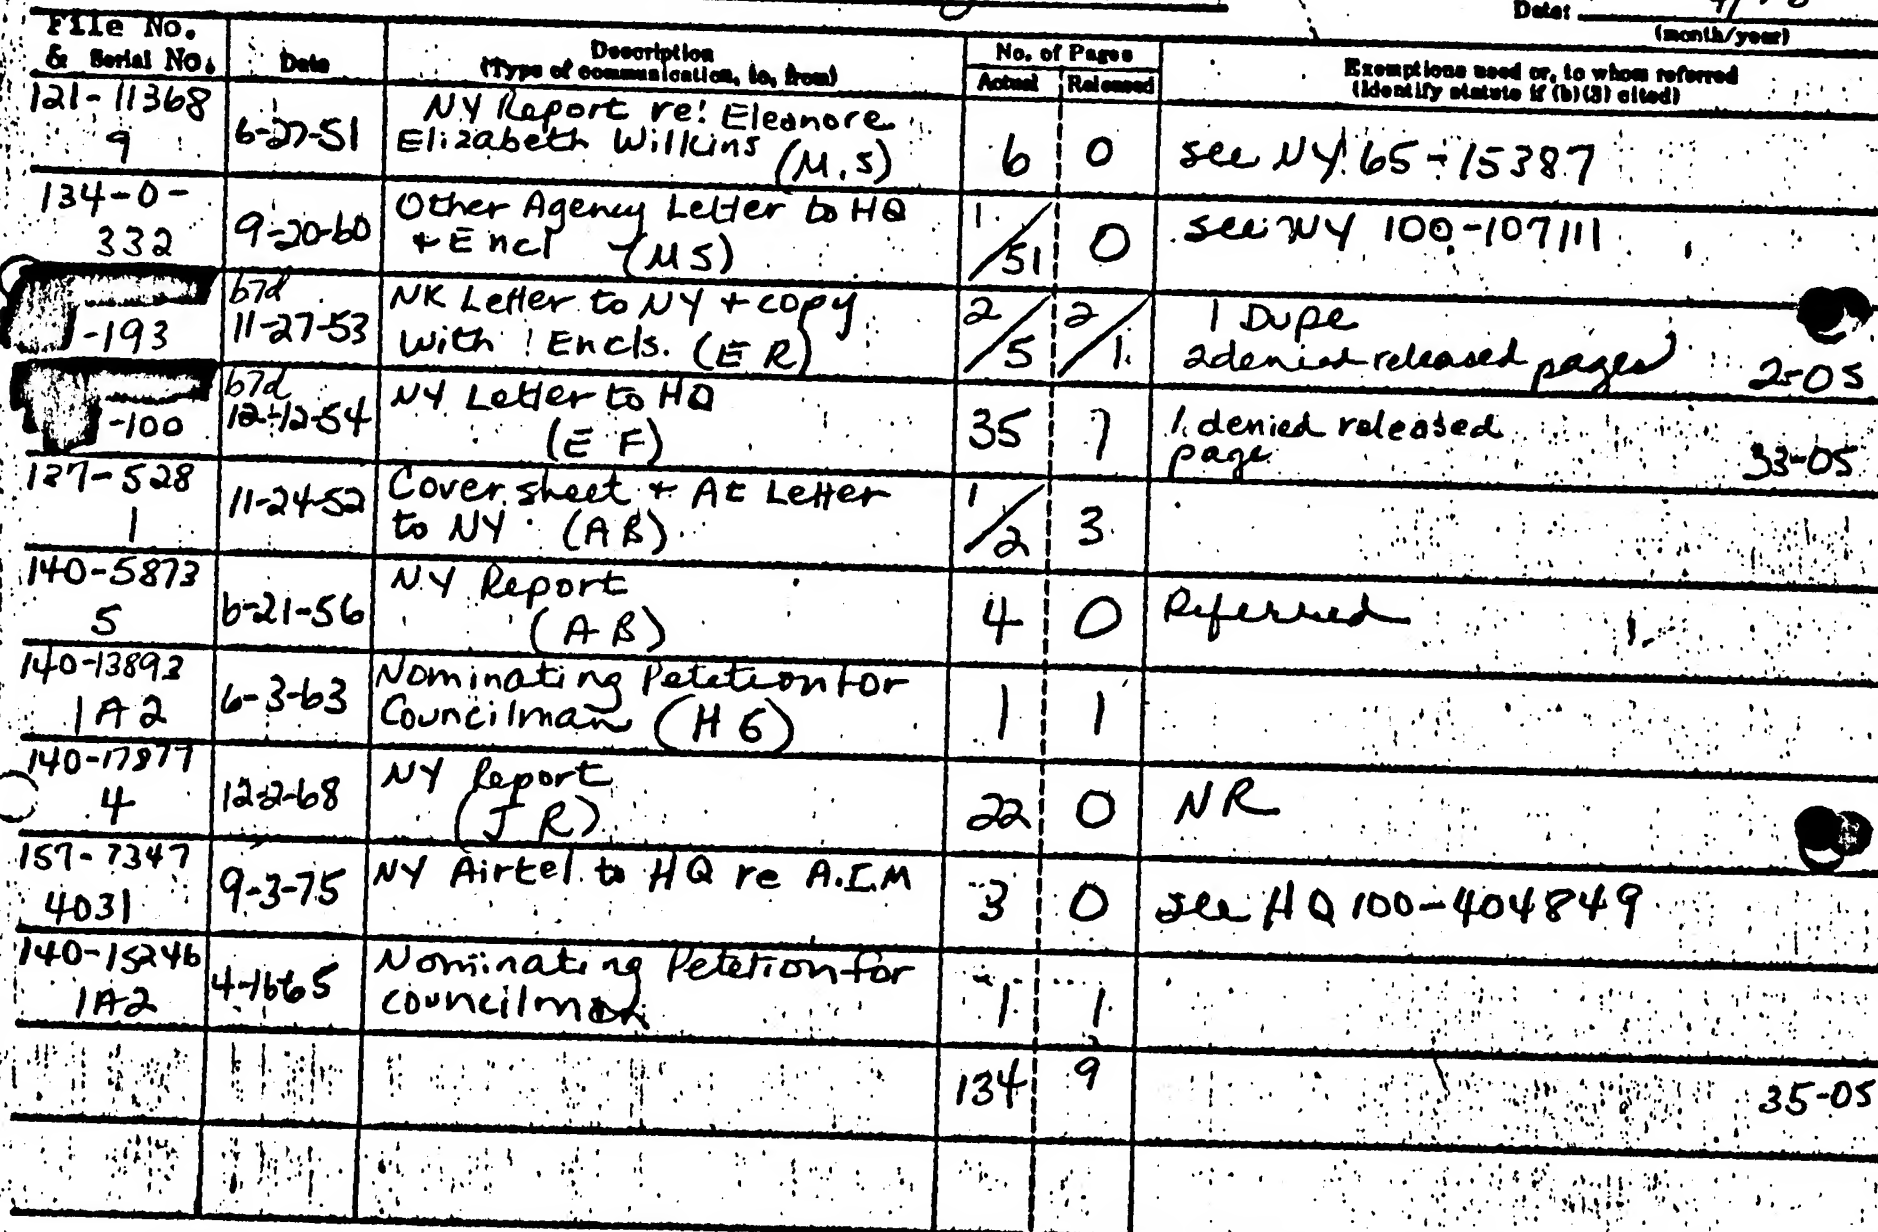 Date:
(month/year)
File No. & Serial No. Date Description (Type of communication, to, from) No. of Pages Actual Released Exemptions used or, to whom referred (Identify statute if (b)(3) cited)
121-11368
9 6-27-51 NY Report re: Eleanore
Elizabeth Wilkins (M.S) 6 0 see NY 65-15387
134-0-
332 9-20-60 Other Agency Letter to HQ
+ Encl (MS) 1/51 0 see NY 100-107111
-193 b7d
11-27-53 NK Letter to NY + copy
with 1 Encls. (E R) 2/5 2/1 1 Dupe
2 denied released pages 2-05
-100 b7d
12-12-54 NY Letter to HQ
(E F) 35 1 denied released
page 33-05
137-528
1 11-24-52 Cover sheet + At Letter
to NY (A B) 1/2 3
140-5873
5 6-21-56 NY Report
(A B) 4 0 Referred
140-13893
1A2 6-3-63 Nominating Petetion for
Councilman (H G) 1 1
140-17877
4 12-2-68 NY Report
(J R) 22 0 NR
157-7347
4031 9-3-75 NY Airtel to HQ re A.I.M 3 0 see HQ 100-404849
140-15246
1A2 4-16-65 Nominating Petetion for
councilman 1 1
134 9 35-05